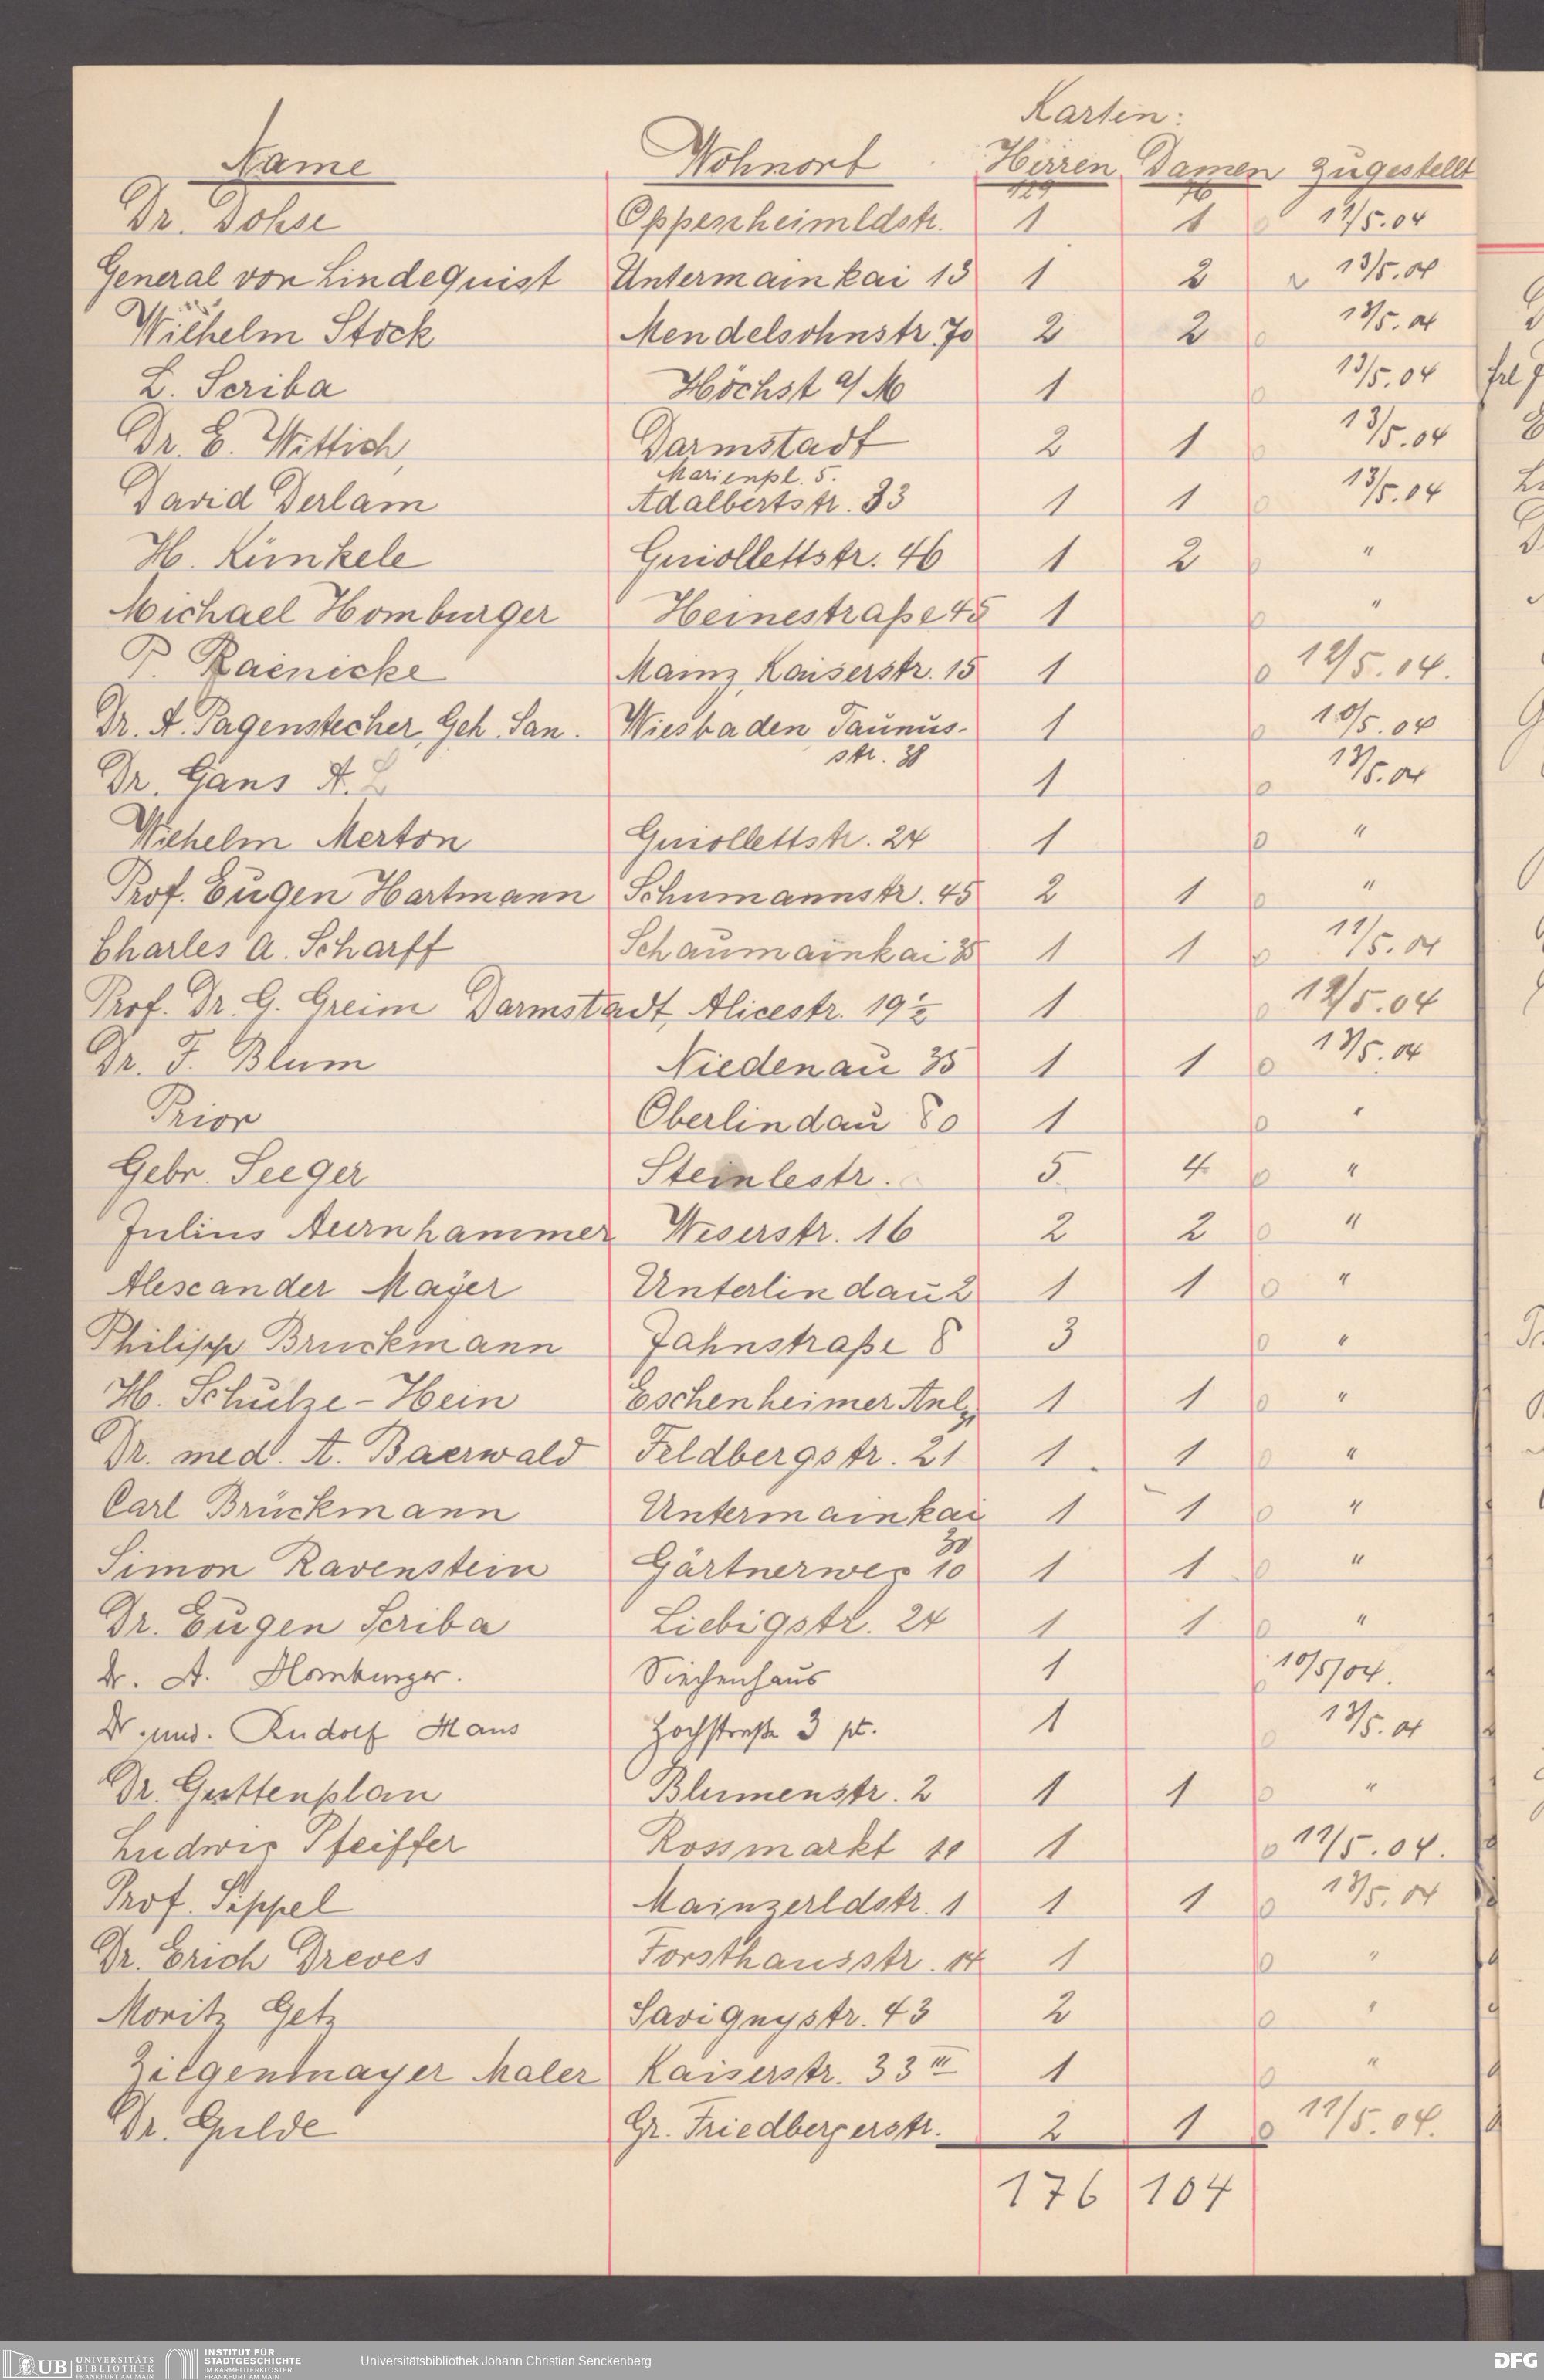 Karten:
Name Wohnort Herren Damen zugestellt
129 76
Dr. Dohse Oppenheimldstr. 1 1 0 12/5.04
General von Lindequist Untermainkai 13 1 2 13/5.04
Wilhelm Stock Mendelsohnstr. 70 2 2 0 13/5.04
L. Scriba Höchst a/M 1 0 13/5.04
Dr. E. Wittich, Darmstadt 2 1 0 13/5.04
Marienpl. 5.
David Derlam Adalbertstr. 33 1 1 0 13/5.04
H. Künkele Guiollettstr. 46 1 2 0 "
Michael Homburger Heinestraße 45 1 0 "
P. Raenicke Mainz, Kaiserstr. 15 1 0 12/5.04.
Dr. A. Pagenstecher, Geh. San. Wiesbaden Taunus- 1 0 10/5.04
str. 38
Dr. Gans A. L 1 0 13/5.04
Wilhelm Merton Guiollettstr. 24 1 0 "
Prof. Eugen Hartmann Schumannstr. 45 2 1 0 "
Charles A. Scharff Schaumainkai 35 1 1 0 11/5.04
Prof. Dr. G. Greim Darmstadt, Alicestr. 19½ 1 0 12/5.04
Dr. F. Blum Niedenau 35 1 1 0 13/5.04
Prior Oberlindau 80 1 0 "
Gebr. Seeger Steinlestr. 5 4 0 "
Julius Aurnhammer Weserstr. 16 2 2 0 "
Alexander Mayer Unterlindau 2 1 1 0 "
Philipp Bruckmann Jahnstraße 8 3 0 "
H. Schulze-Hein Eschenheimer Anlg. 1 1 0 "
Dr. med. A. Baerwald Feldbergstr. 21 1 1 0 "
Carl Brückmann Untermainkai 1 1 0 "
30
Simon Ravenstein Gärtnerweg 10 1 1 0 "
Dr. Eugen Scriba Liebigstr. 24 1 1 0 "
Dr. A. Homburger. Siechenhaus 1 0 10/5/04.
Dr. med. Rudolf Maus Hochstraße 3 pt. 1 0 13/5.04
Dr. Guttenplan Blumenstr. 2 1 1 0 "
Ludwig Pfeiffer Rossmarkt 11 1 0 11/5.04.
Prof. Sippel Mainzerldstr. 1 1 1 0 13/5.04
Dr. Erich Dreves Forsthausstr. 14 1 0 "
Moritz Getz Savignystr. 43 2 0 "
Ziegenmayer Maler Kaiserstr. 33 III 1 0 "
Dr. Gulde Gr. Friedbergerstr. 2 1 0 11/5.04.
176 104
UB UNIVERSITÄTS
BIBLIOTHEK
FRANKFURT AM MAIN
INSTITUT FÜR
STADTGESCHICHTE
IM KARMELITERKLOSTER
FRANKFURT AM MAIN
Universitätsbibliothek Johann Christian Senckenberg
DFG